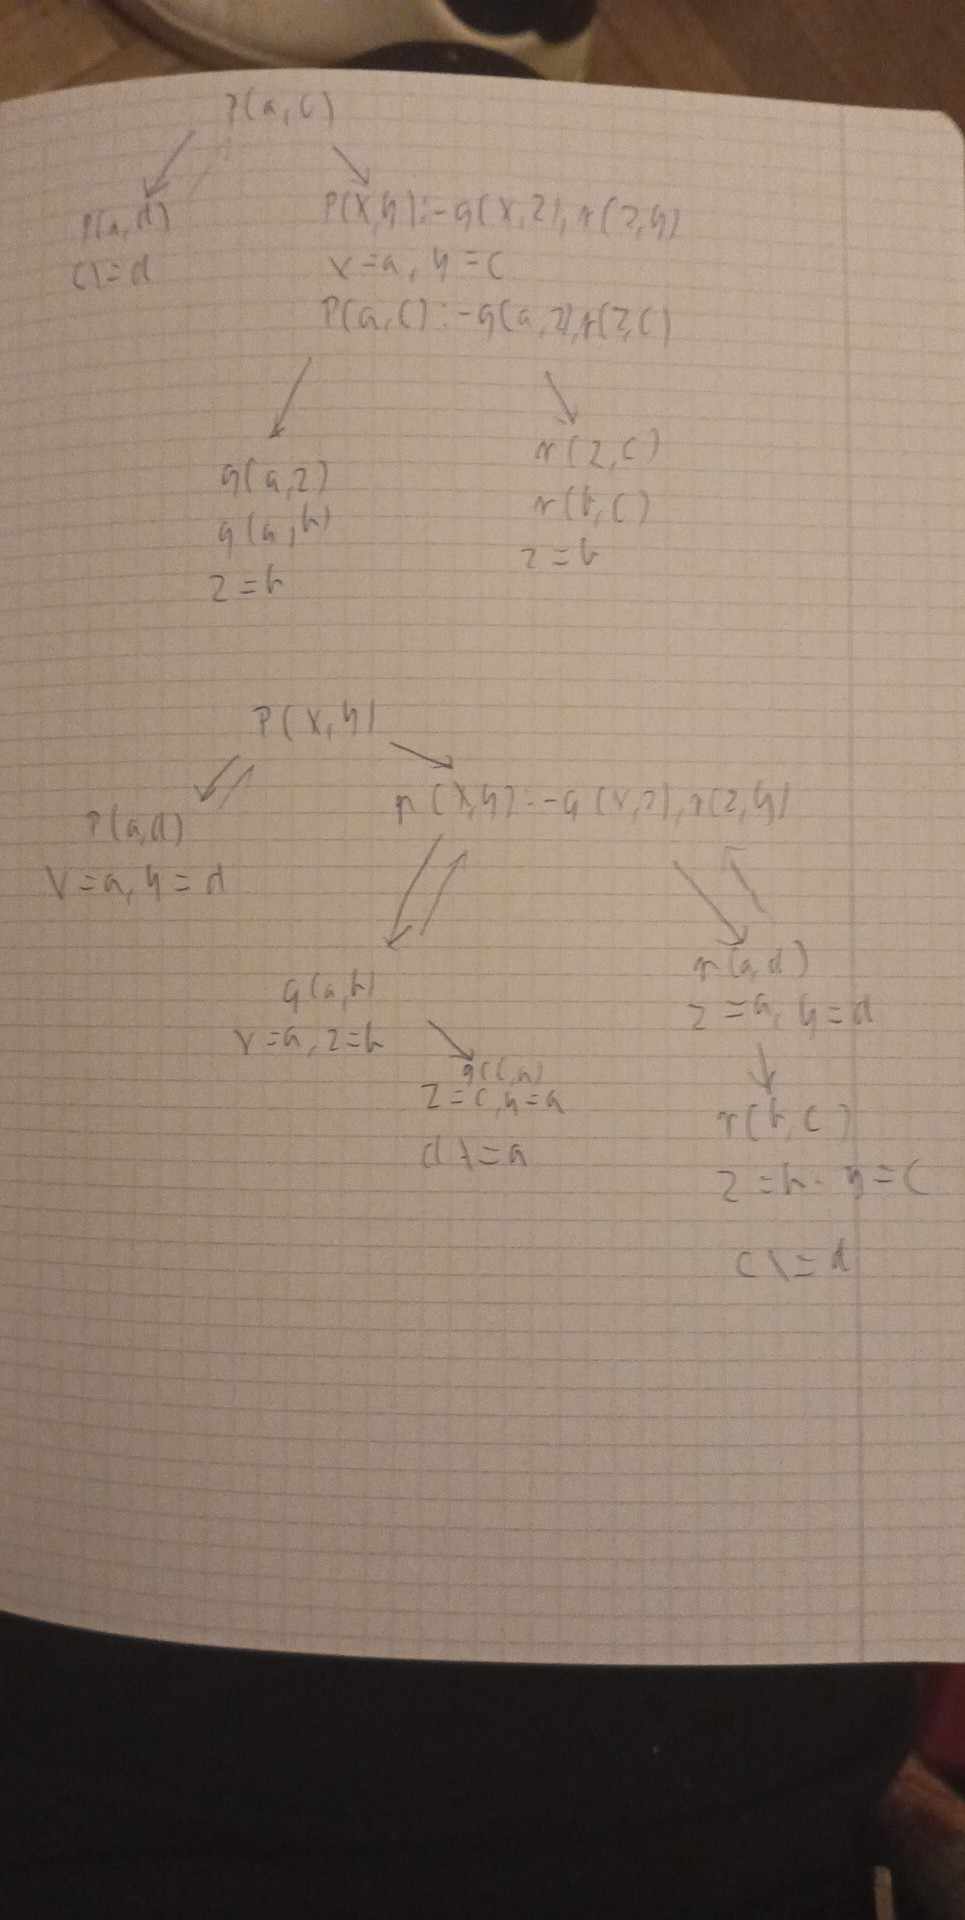 P(a,c)
P(a,d)
c\=d
P(X,y):-q(X,z),r(z,y)
X=a, y=c
P(a,c):-q(a,z),r(z,c)
q(a,z)
q(a,b)
z=b
r(z,c)
r(b,c)
z=b
P(X,y)
P(a,d)
X=a, y=d
p(X,y):-q(X,z),r(z,y)
q(a,b)
X=a, z=b
q(c,a)
z=c, y=a
d\=a
r(a,d)
z=a, y=d
r(b,c)
z=b. y=c
c\=d